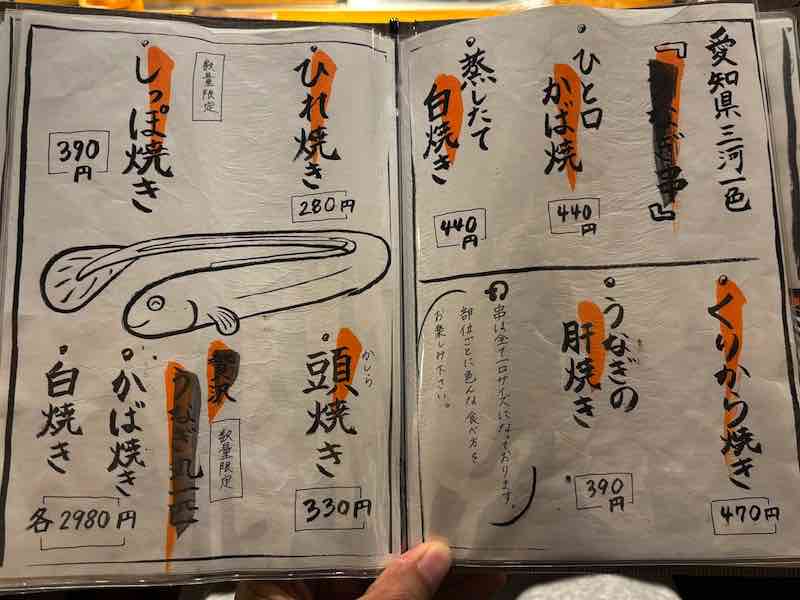 愛知県三河一色
『うなぎ串』
ひと口
かば焼
440
円
蒸したて
白焼き
440
円
くりから焼き
470円
うなぎの
肝焼き
390
円
串は全て一口サイズになっております。
部位ごとに色んな食べ方を
お楽しみ下さい。
ひれ焼き
280円
数量限定
しっぽ焼き
390
円
かしら
頭焼き
330円
贅沢
うなぎ丸一匹
数量限定
かば焼き
白焼き
各2980円